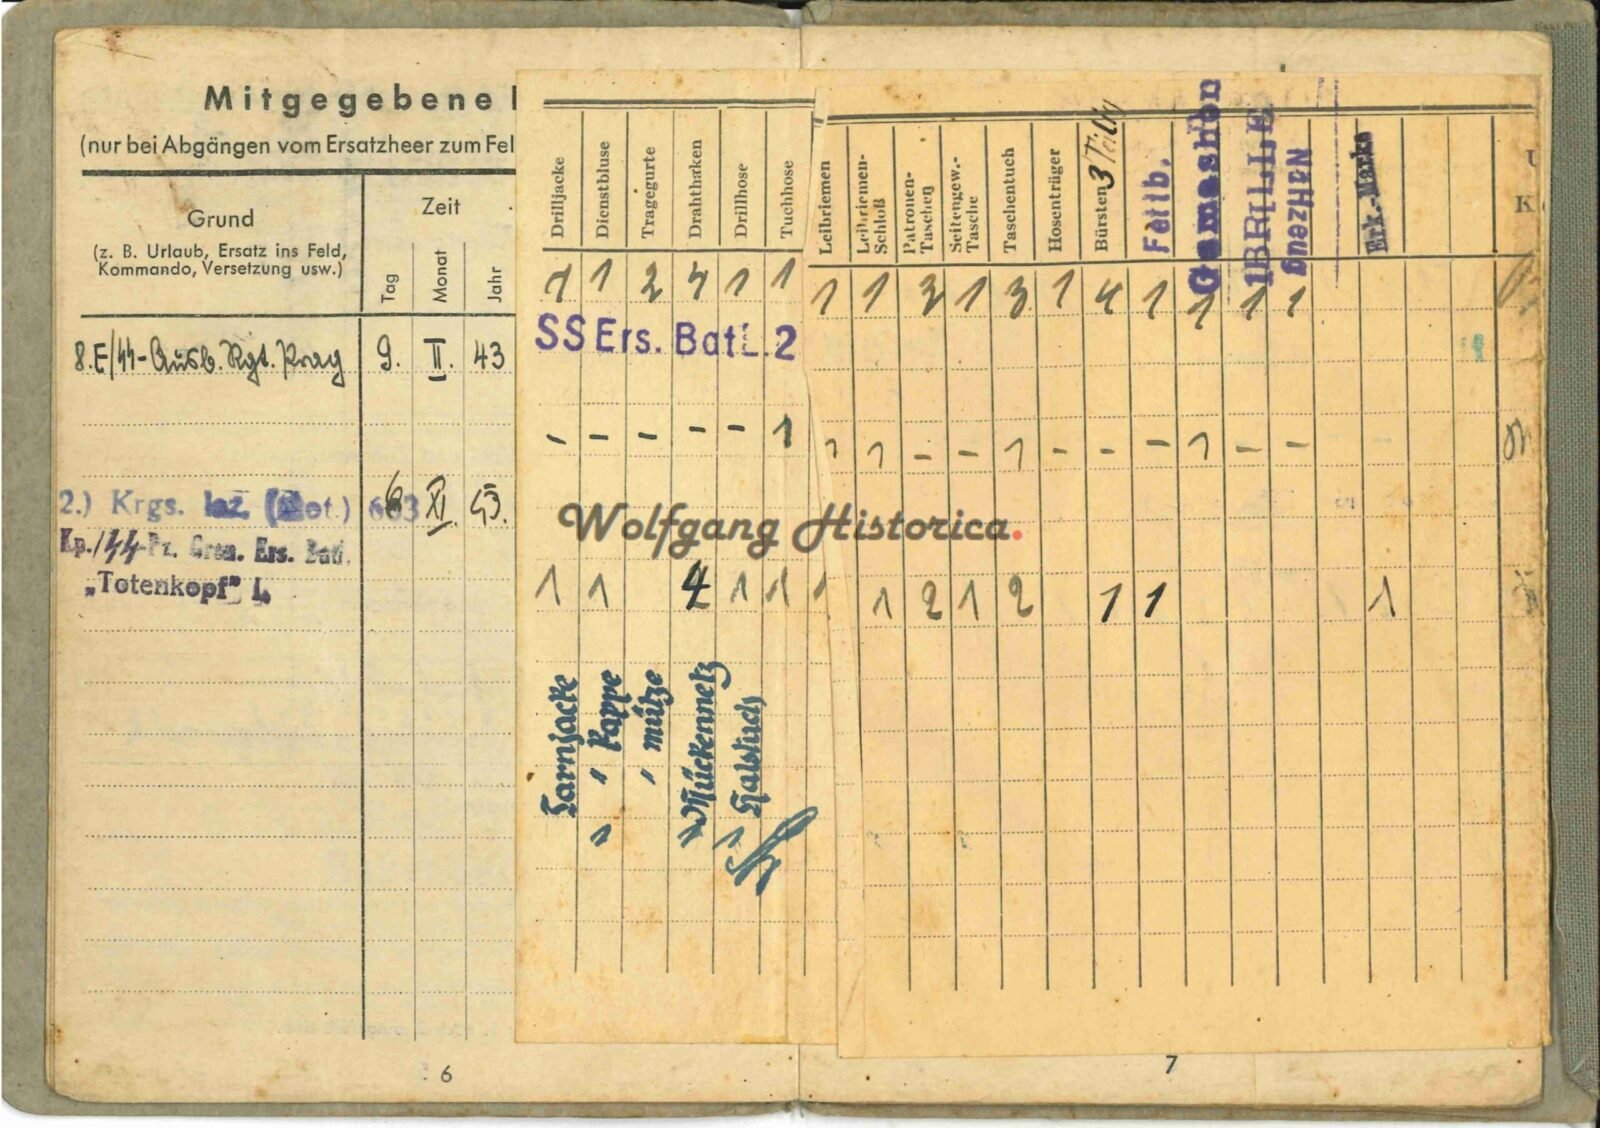 Mitgegebene
(nur bei Abgängen vom Ersatzheer zum Fel
Grund
(z. B. Urlaub, Ersatz ins Feld,
Kommando, Versetzung usw.)
Zeit
Tag
Monat
Jahr
8.E/SS-Ausb. Rgt. Prag 9. II. 43
2.) Krgs. laz. 603 6 XI. 43.
Kp./SS-Pz. Gren. Ers. Batl.
„Totenkopf" I.
6
Drilljacke
Dienstbluse
Tragegurte
Drahthaken
Drillhose
Tuchhose
1 1 2 4 1 1
SS Ers. Batl. 2
- - - - - 1
1 1 4 1 1
Tarnjacke
" Kappe
" mütze
Mückennetz
Halstuch
Leibriemen
Leibriemen-
Schloß
Patronen-
Taschen
Seitengew.-
Tasche
Taschentuch
Hosenträger
Bürsten 3 Teilig
Fettb.
Gamaschen
1BRILLE
Nähzeug
Erk.-Marke
1 1 3 1 3 1 4 1 1 1 1
1 1 - - 1 - - - 1 - -
1 1 2 1 2 1 1 1
Wolfgang Historica.
7